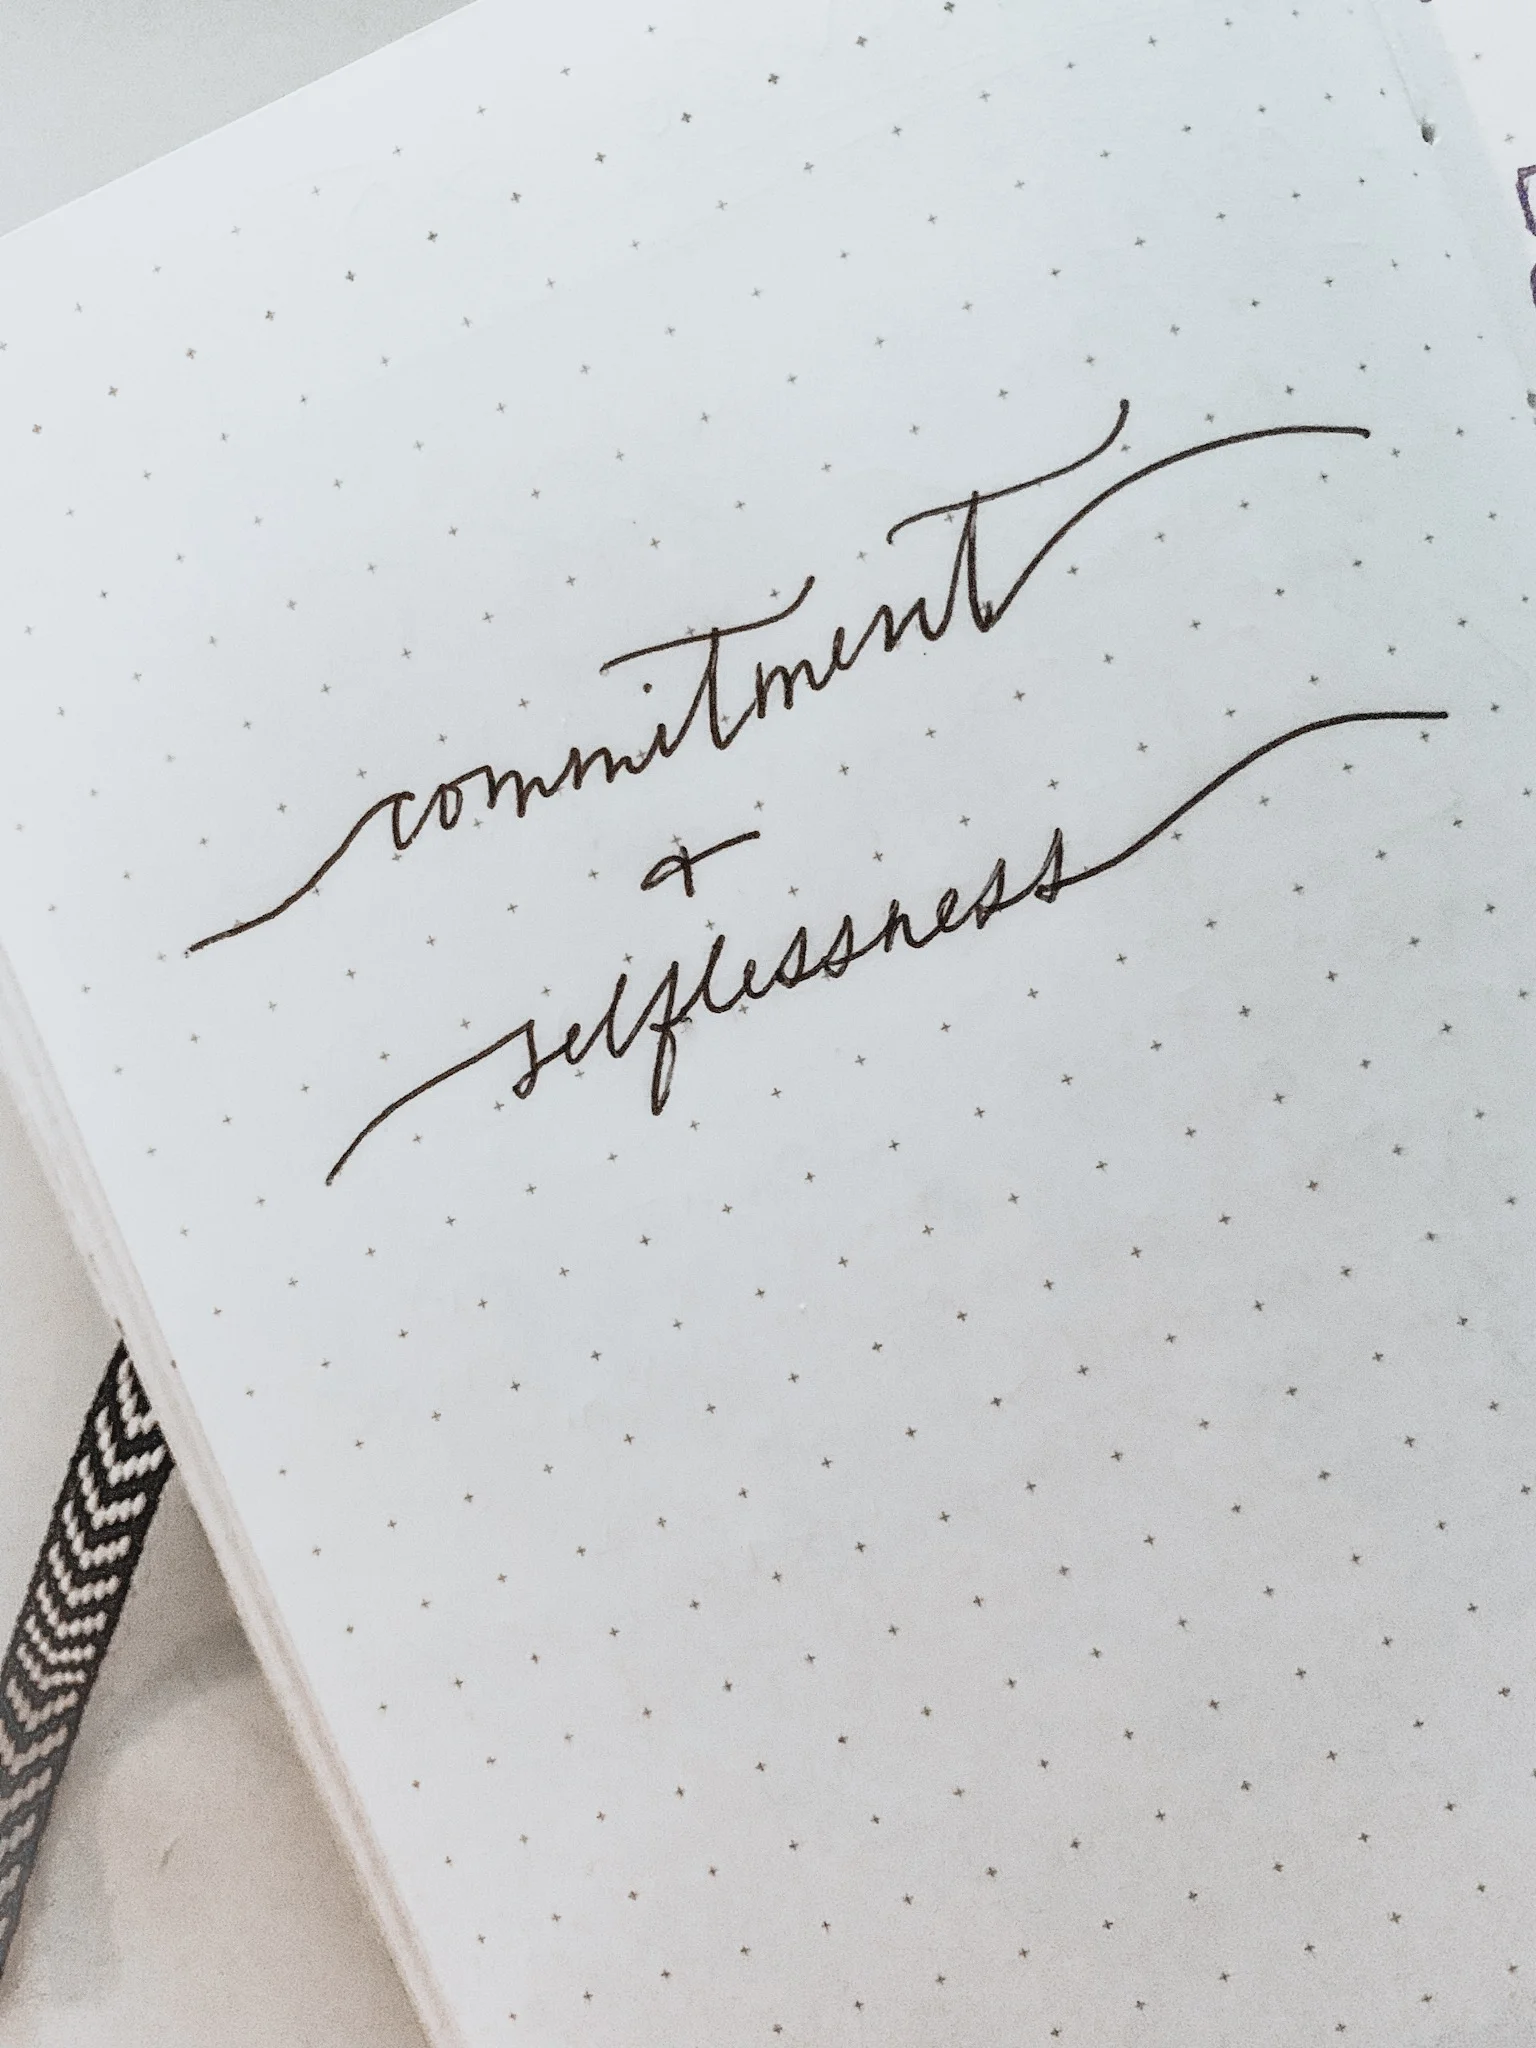 commitment
+
selflessness